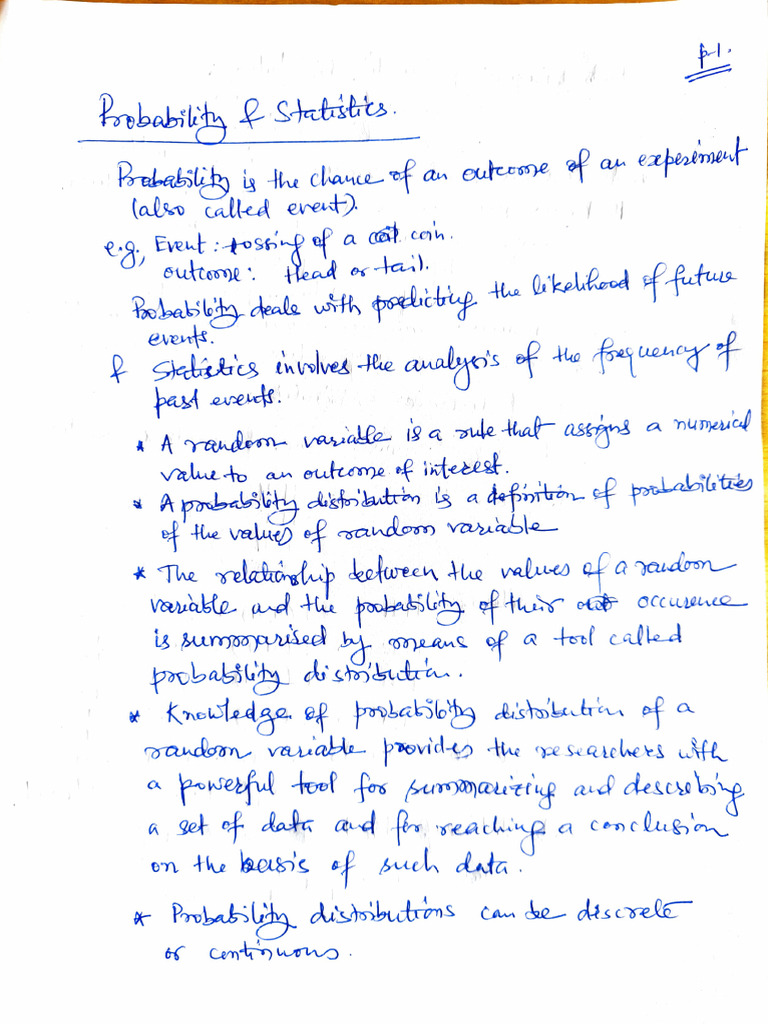 p-1.
Probability & Statistics.
Probability is the chance of an outcome of an experiment
(also called event).
e.g., Event: tossing of a coin.
outcome: Head or tail.
Probability deals with predicting the likelihood of future
events.
& Statistics involves the analysis of the frequency of
past events.
* A random variable is a rule that assigns a numerical
value to an outcome of interest.
* A probability distribution is a definition of probabilities
of the values of random variable
* The relationship between the values of a random
variable and the probability of their occurence
is summarised by means of a tool called
probability distribution.
* Knowledge of probability distribution of a
random variable provides the researchers with
a powerful tool for summarizing and describing
a set of data and for reaching a conclusion
on the basis of such data.
* Probability distributions can be discrete
or continuous.